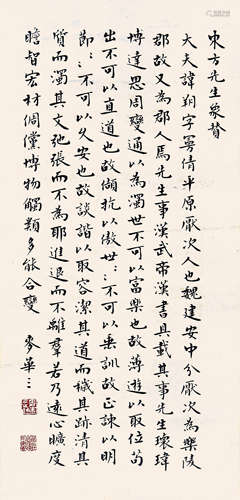 東方先生象贊
大夫諱朔字曼倩平原厭次人也魏建安中分厭次為樂陵
郡故又為郡人焉先生事漢武帝漢書具載其事先生瓌瑋
博達思周變通以為濁世不可以富樂也故薄遊以取位苟
出不可以直道也故頡抗以傲世〻〻不可以垂訓故正諫以明
節〻〻不可以久安也故談諧以取容潔其道而穢其跡清其
質而濁其文弛張而不為邪進退而不離羣若乃遠心曠度
瞻智宏材倜儻博物觸類多能合變 麥華三